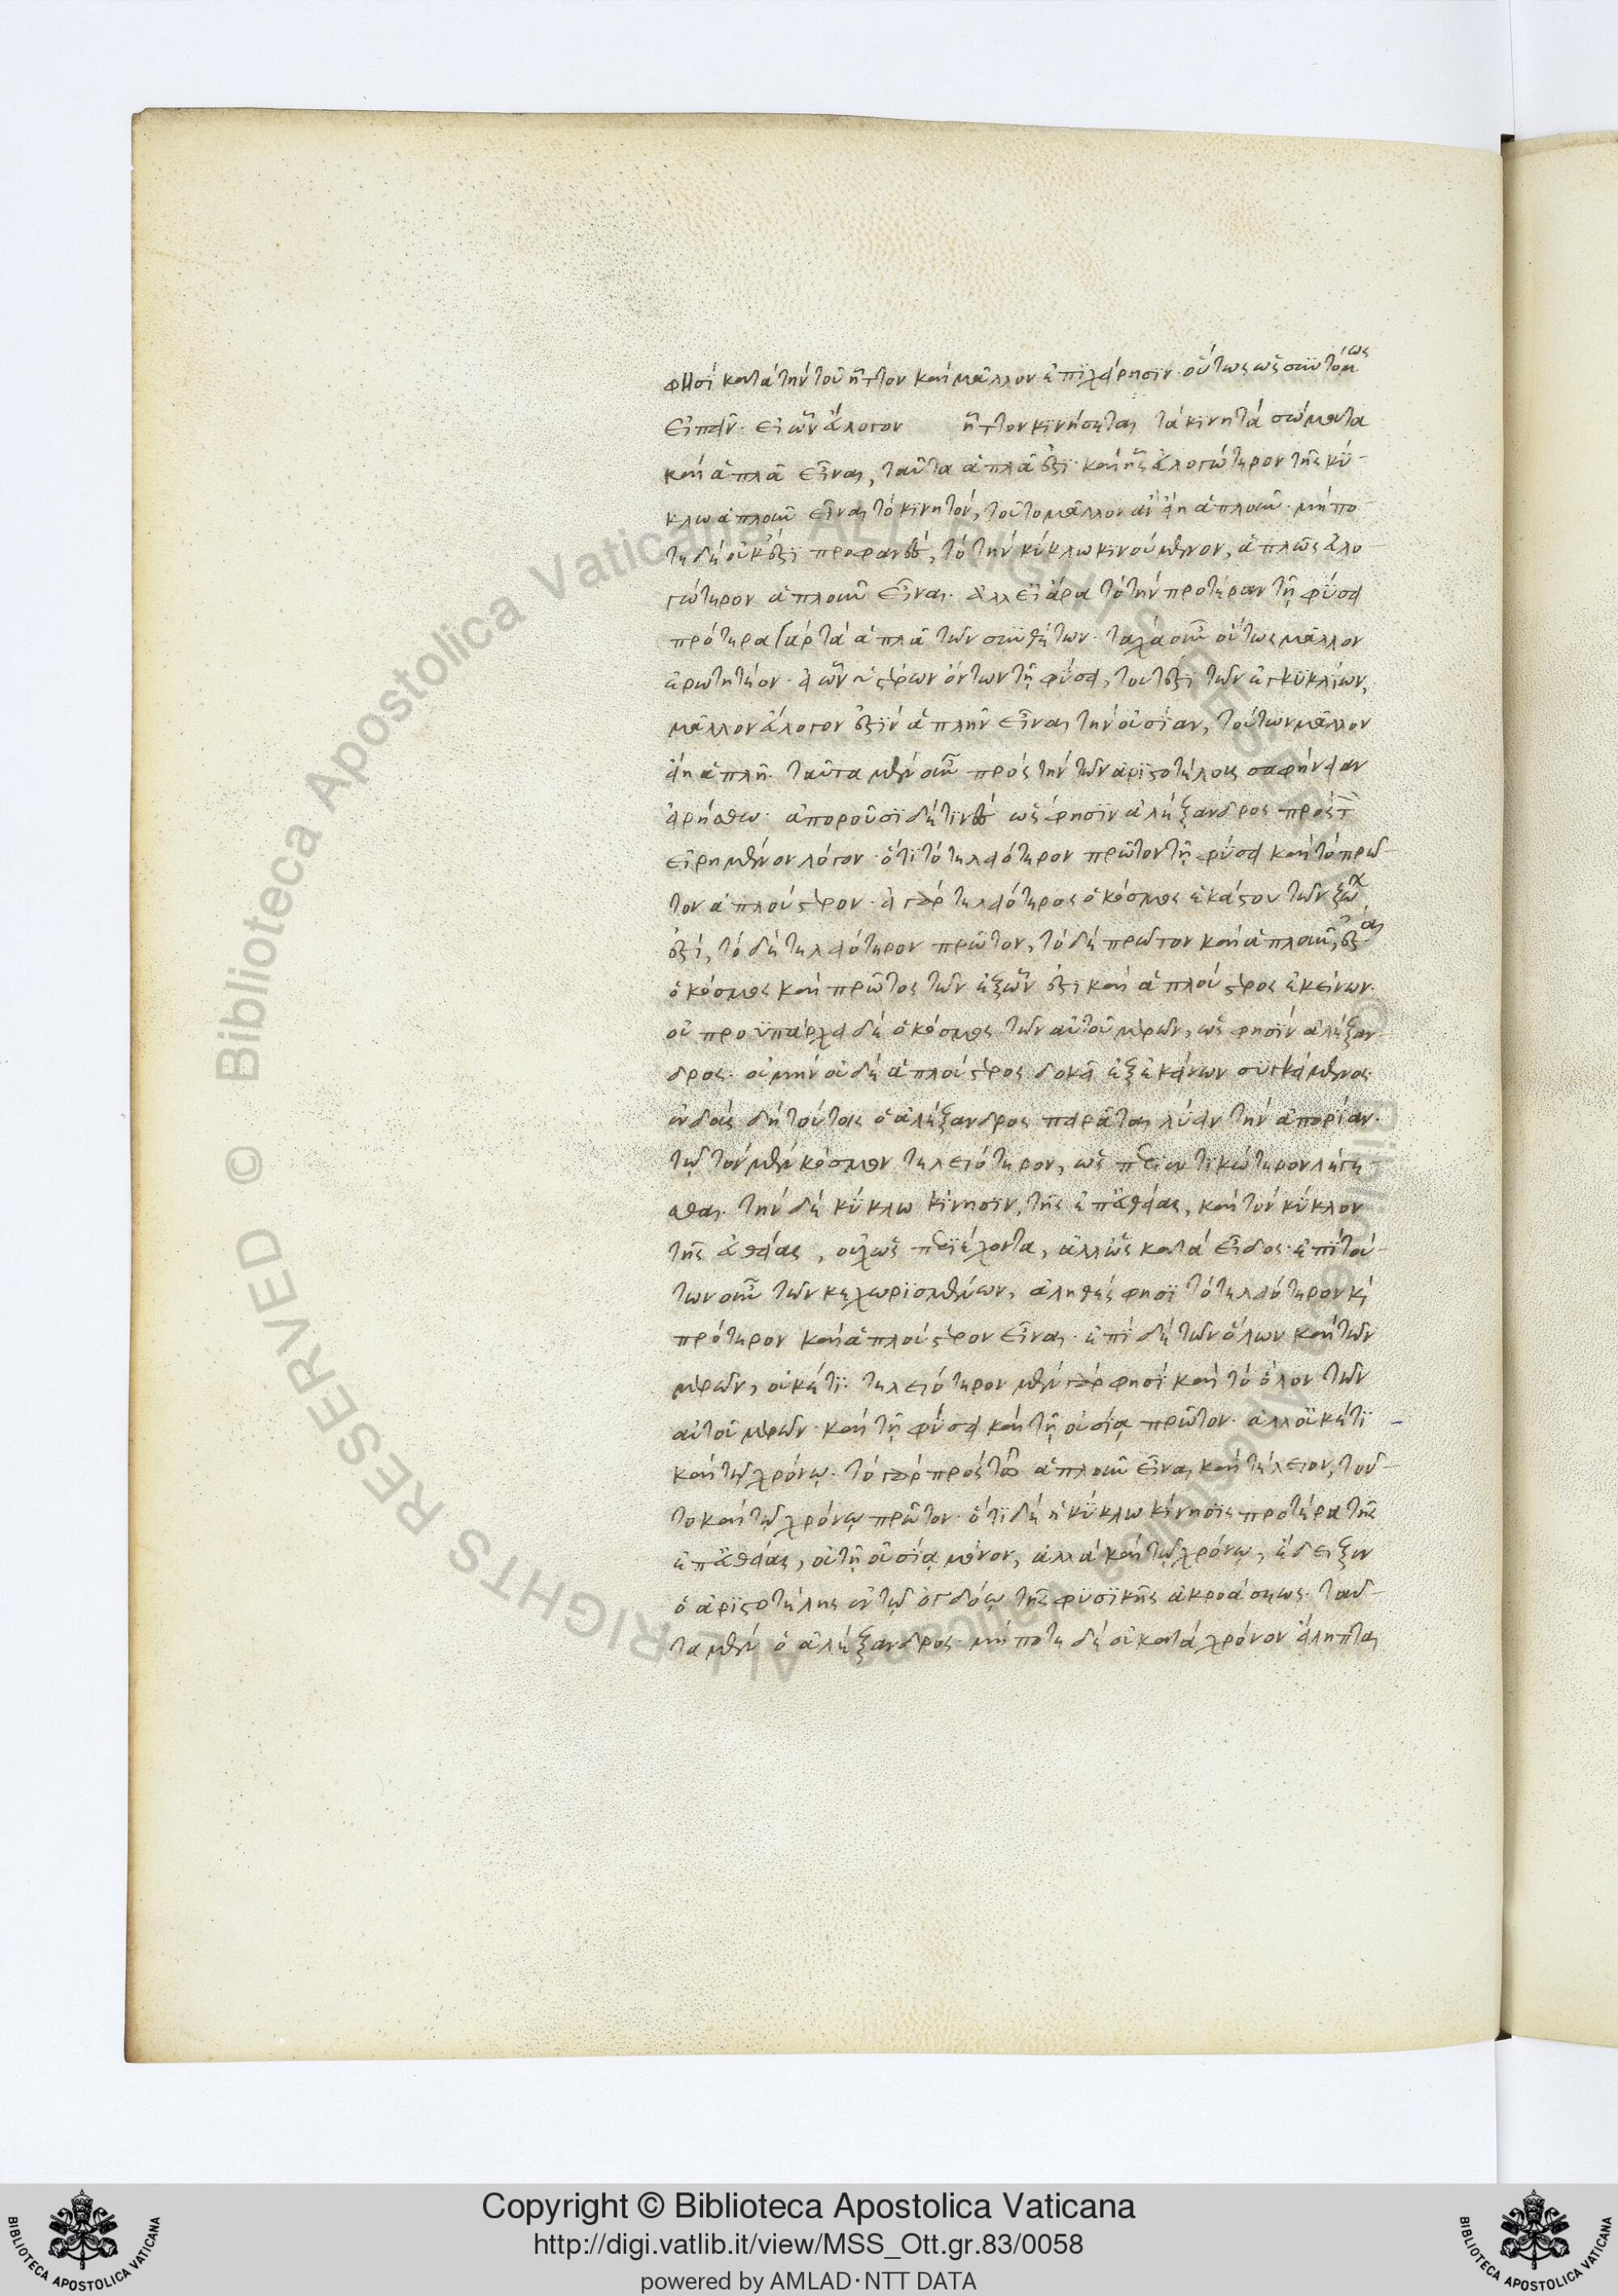 φησὶ κατὰ τὴν τοῦ ἧττον καὶ μᾶλλον ἐπιχείρησιν. οὕτως ὡς συντόμως
εἰπεῖν. εἰ ὧν ἄλογον ἧττον κινήσεται τὰ κινητὰ σώματα
καὶ ἁπλᾶ εἶναι, ταῦτα ἁπλᾶ ἐστι. καὶ ἧς ἀλογώτερον τῆς κύ-
κλω ἁπλοῦν εἶναι τὸ κινητόν, τοῦτο μᾶλλον ἂν εἴη ἁπλοῦν. μήπο
τε δὲ οὐκ ἔστι προφανὲς, τὸ τὴν κύκλω κινούμενον, ἁπλῶς ἀλο
γώτερον ἁπλοῦν εἶναι. ἀλλ εἰ ἄρα τὸ τὴν προτέραν τῆ φύσει
πρότερα γὰρ τὰ ἁπλᾶ τῶν συνθέτων. τάχα οὖν οὕτως μᾶλλον
ἐρωτητέον. εἰ ὧν ὑστέρων ὄντων τῆ φύσει, τουτέστι τῶν ἐγκυκλίων,
μᾶλλον ἄλογόν ἐστιν ἁπλῆν εἶναι τὴν οὐσίαν, τούτων μᾶλλον
εἴη ἁπλῆ. ταῦτα μὲν οὖν πρὸς τὴν τῶν ἀριστοτέλους σαφήνειαν
εἰρήσθω. ἀποροῦσι δέ τινες ὥς φησιν ἀλέξανδρος πρὸς τὸν
εἰρημένον λόγον. ὅτι τὸ τελειότερον πρῶτον τῆ φύσει καὶ τὸ πρῶ-
τον ἁπλούστερον. εἰ γὰρ τελειότερος ὁ κόσμος ἑκάστου τῶν ἐξ ὧν
ἐστί, τὸ δὲ τελειότερον πρῶτον, τὸ δὲ πρῶτον καὶ ἁπλοῦν, ἔσται
ὁ κόσμος καὶ πρῶτος τῶν ἐξ ὧν ἐστι καὶ ἁπλούστερος ἐκείνων.
οὐ προϋπάρχει δὲ ὁ κόσμος τῶν αὐτοῦ μερῶν, ὥς φησιν ἀλέξαν
δρος. οὐ μὴν οὐδὲ ἁπλούστερος δοκεῖ ἐξ ἐκείνων συγκείμενος.
ἐνδοὺς δὴ τούτοις ὁ ἀλέξανδρος πειρᾶται λύειν τὴν ἀπορίαν.
τῶ τὸν μὲν κόσμον τελειότερον, ὡς περιεκτικώτερον λέγε
σθαι. τὴν δὲ κύκλω κίνησιν, τῆς ἐπ εὐθείας, καὶ τὸν κύκλον
τῆς εὐθείας, οὐχ ὡς περιέχοντα, ἀλλ ὡς κατὰ εἶδος. ἐπὶ τού-
των οὖν τῶν κεχωρισμένων, ἀληθές φησι τὸ τελειότερον καὶ
πρότερον καὶ ἁπλούστερον εἶναι. ἐπὶ δὲ τῶν ὅλων καὶ τῶν
μερῶν, οὐκέτι. τελειότερον μὲν γάρ φησι καὶ τὸ ὅλον τῶν
αὐτοῦ μερῶν. καὶ τῆ φύσει καὶ τῆ οὐσίᾳ πρῶτον. ἀλλ οὐκέτι
καὶ τῷ χρόνῳ. τὸ γὰρ πρὸς τῷ ἁπλοῦν εἶναι καὶ τέλειον, τοῦ-
το καὶ τῷ χρόνῳ πρῶτον. ὅτι δὲ ἡ κύκλω κίνησις προτέρα τῆς
ἐπ εὐθείας, οὐ τῇ οὐσίᾳ μόνον, ἀλλὰ καὶ τῷ χρόνῳ, ἔδειξεν
ὁ ἀριστοτέλης ἐν τῷ ὀγδόῳ τῆς φυσικῆς ἀκροάσεως. ταῦ-
τα μὲν ὁ ἀλέξανδρος. μήποτε δὲ οὐ κατὰ χρόνον εἴληπται
Copyright © Biblioteca Apostolica Vaticana
http://digi.vatlib.it/view/MSS_Ott.gr.83/0058
powered by AMLAD·NTT DATA
BIBLIOTECA APOSTOLICA VATICANA
BIBLIOTECA APOSTOLICA VATICANA
© Biblioteca Apostolica Vaticana ALL RIGHTS RESERVED